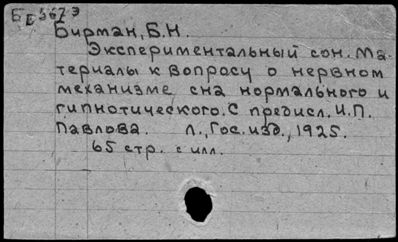 Бирман, Б.Н.
Экспериментальный сон. Ма-
териалы к вопросу о нервном
механизме сна нормального и
гипнотического. С предисл. И.П.
Павлова. Л., Гос. изд., 1925.
65 стр. с илл.